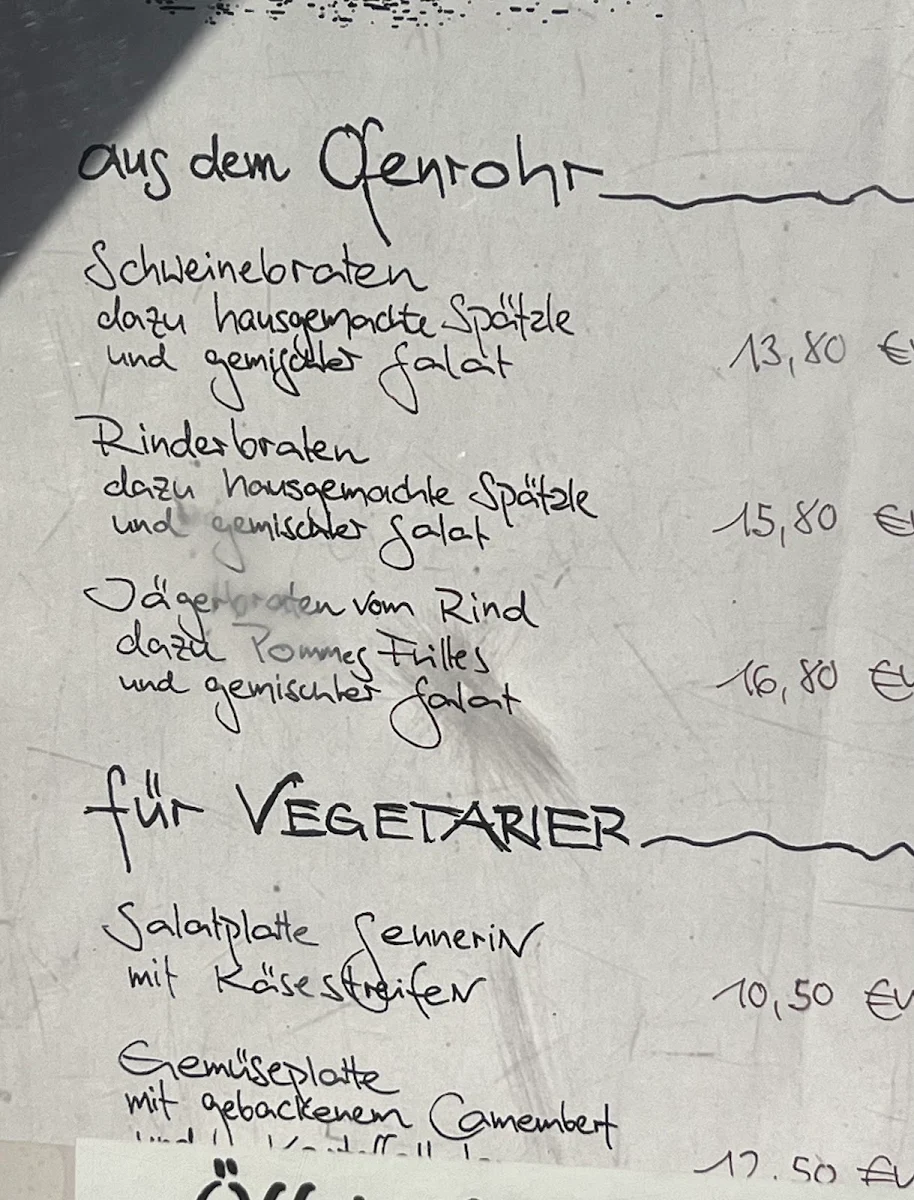 aus dem Ofenrohr
Schweinebraten
dazu hausgemachte Spätzle
und gemischter Salat 13,80 €
Rinderbraten
dazu hausgemachte Spätzle
und gemischter Salat 15,80 €
Jägerbraten vom Rind
dazu Pommes Frittes
und gemischter Salat 16,80 €
für VEGETARIER
Salatplatte Sennerin
mit Käsestreifen 10,50 €
Gemüseplatte
mit gebackenem Camembert
und 12.50 €